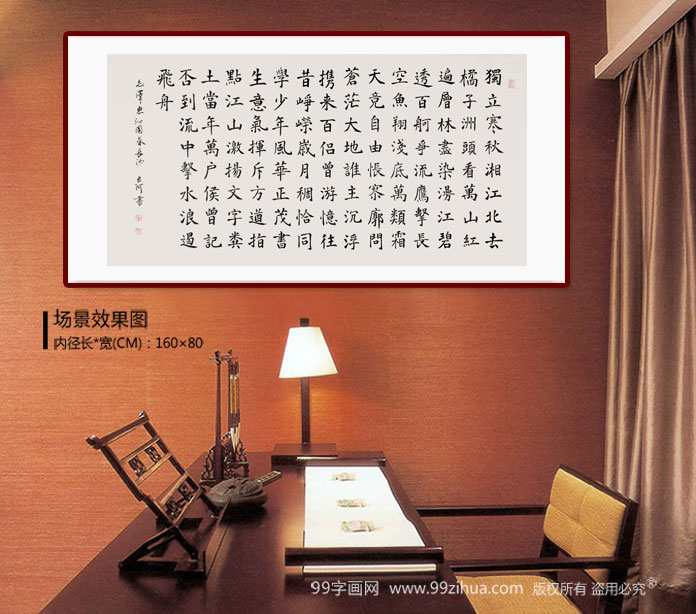 獨立寒秋湘江北去
橘子洲頭看萬山紅
遍層林盡染漫江碧
透百舸爭流鷹擊長
空魚翔淺底萬類霜
天竞自由悵寥廓問
蒼茫大地誰主沉浮
携来百侣曾游憶往
昔崢嶸歲月稠恰同
學少年風華正茂書
生意氣揮斥方遒指
點江山激揚文字糞
土當年萬户侯曾記
否到流中擊水浪遏
飛舟
毛澤東沁園春長沙 書
场景效果图
内径长*宽(CM)：160×80
99字画网 www.99zihua.com 版权所有 盗用必究®